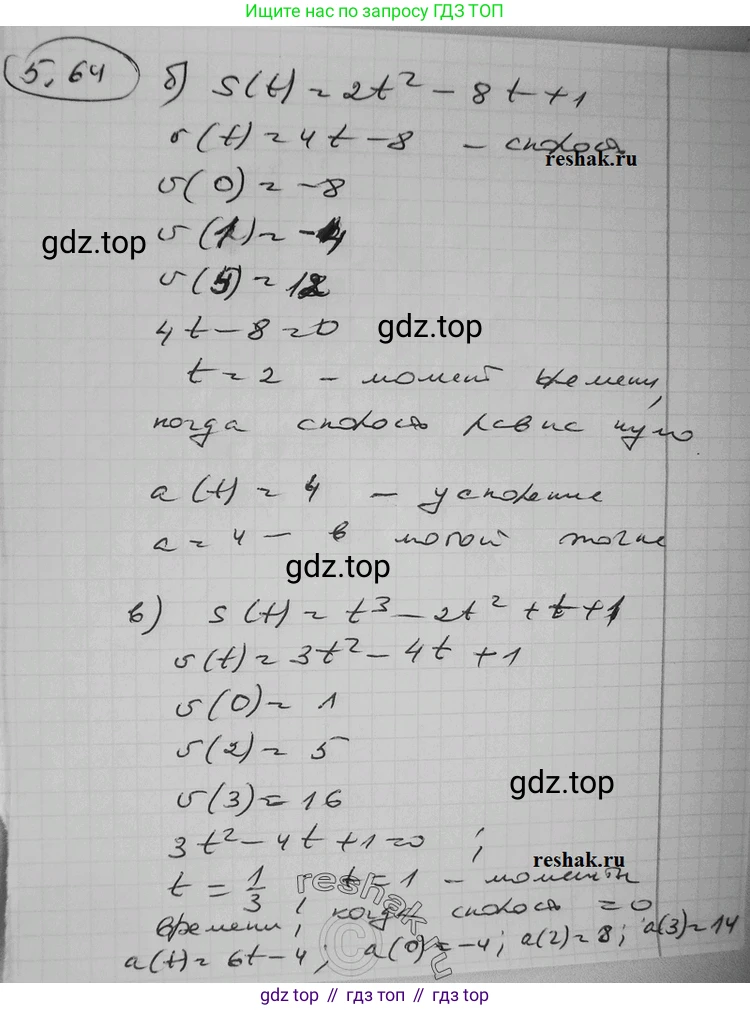 Ищите нас по запросу ГДЗ ТОП
5.64 б) S(t) = 2t² - 8t + 1
v(t) = 4t - 8 - скорость
reshak.ru
v(0) = -8
v(1) = -4
gdz.top
v(5) = 12
4t - 8 = 0
gdz.top
t = 2 - момент времени,
когда скорость равна нулю
a(t) = 4 - ускорение
a = 4 - в любой точке
gdz.top
в) S(t) = t³ - 2t² + t + 1
v(t) = 3t² - 4t + 1
v(0) = 1
v(2) = 5
gdz.top
v(3) = 16
3t² - 4t + 1 = 0 ;
reshak.ru
t = 1/3 ; t = 1 - моменты
времени, когда скорость = 0
reshak.ru
©
a(t) = 6t - 4; a(0) = -4; a(2) = 8; a(3) = 14
gdz top // гдз топ // gdz top